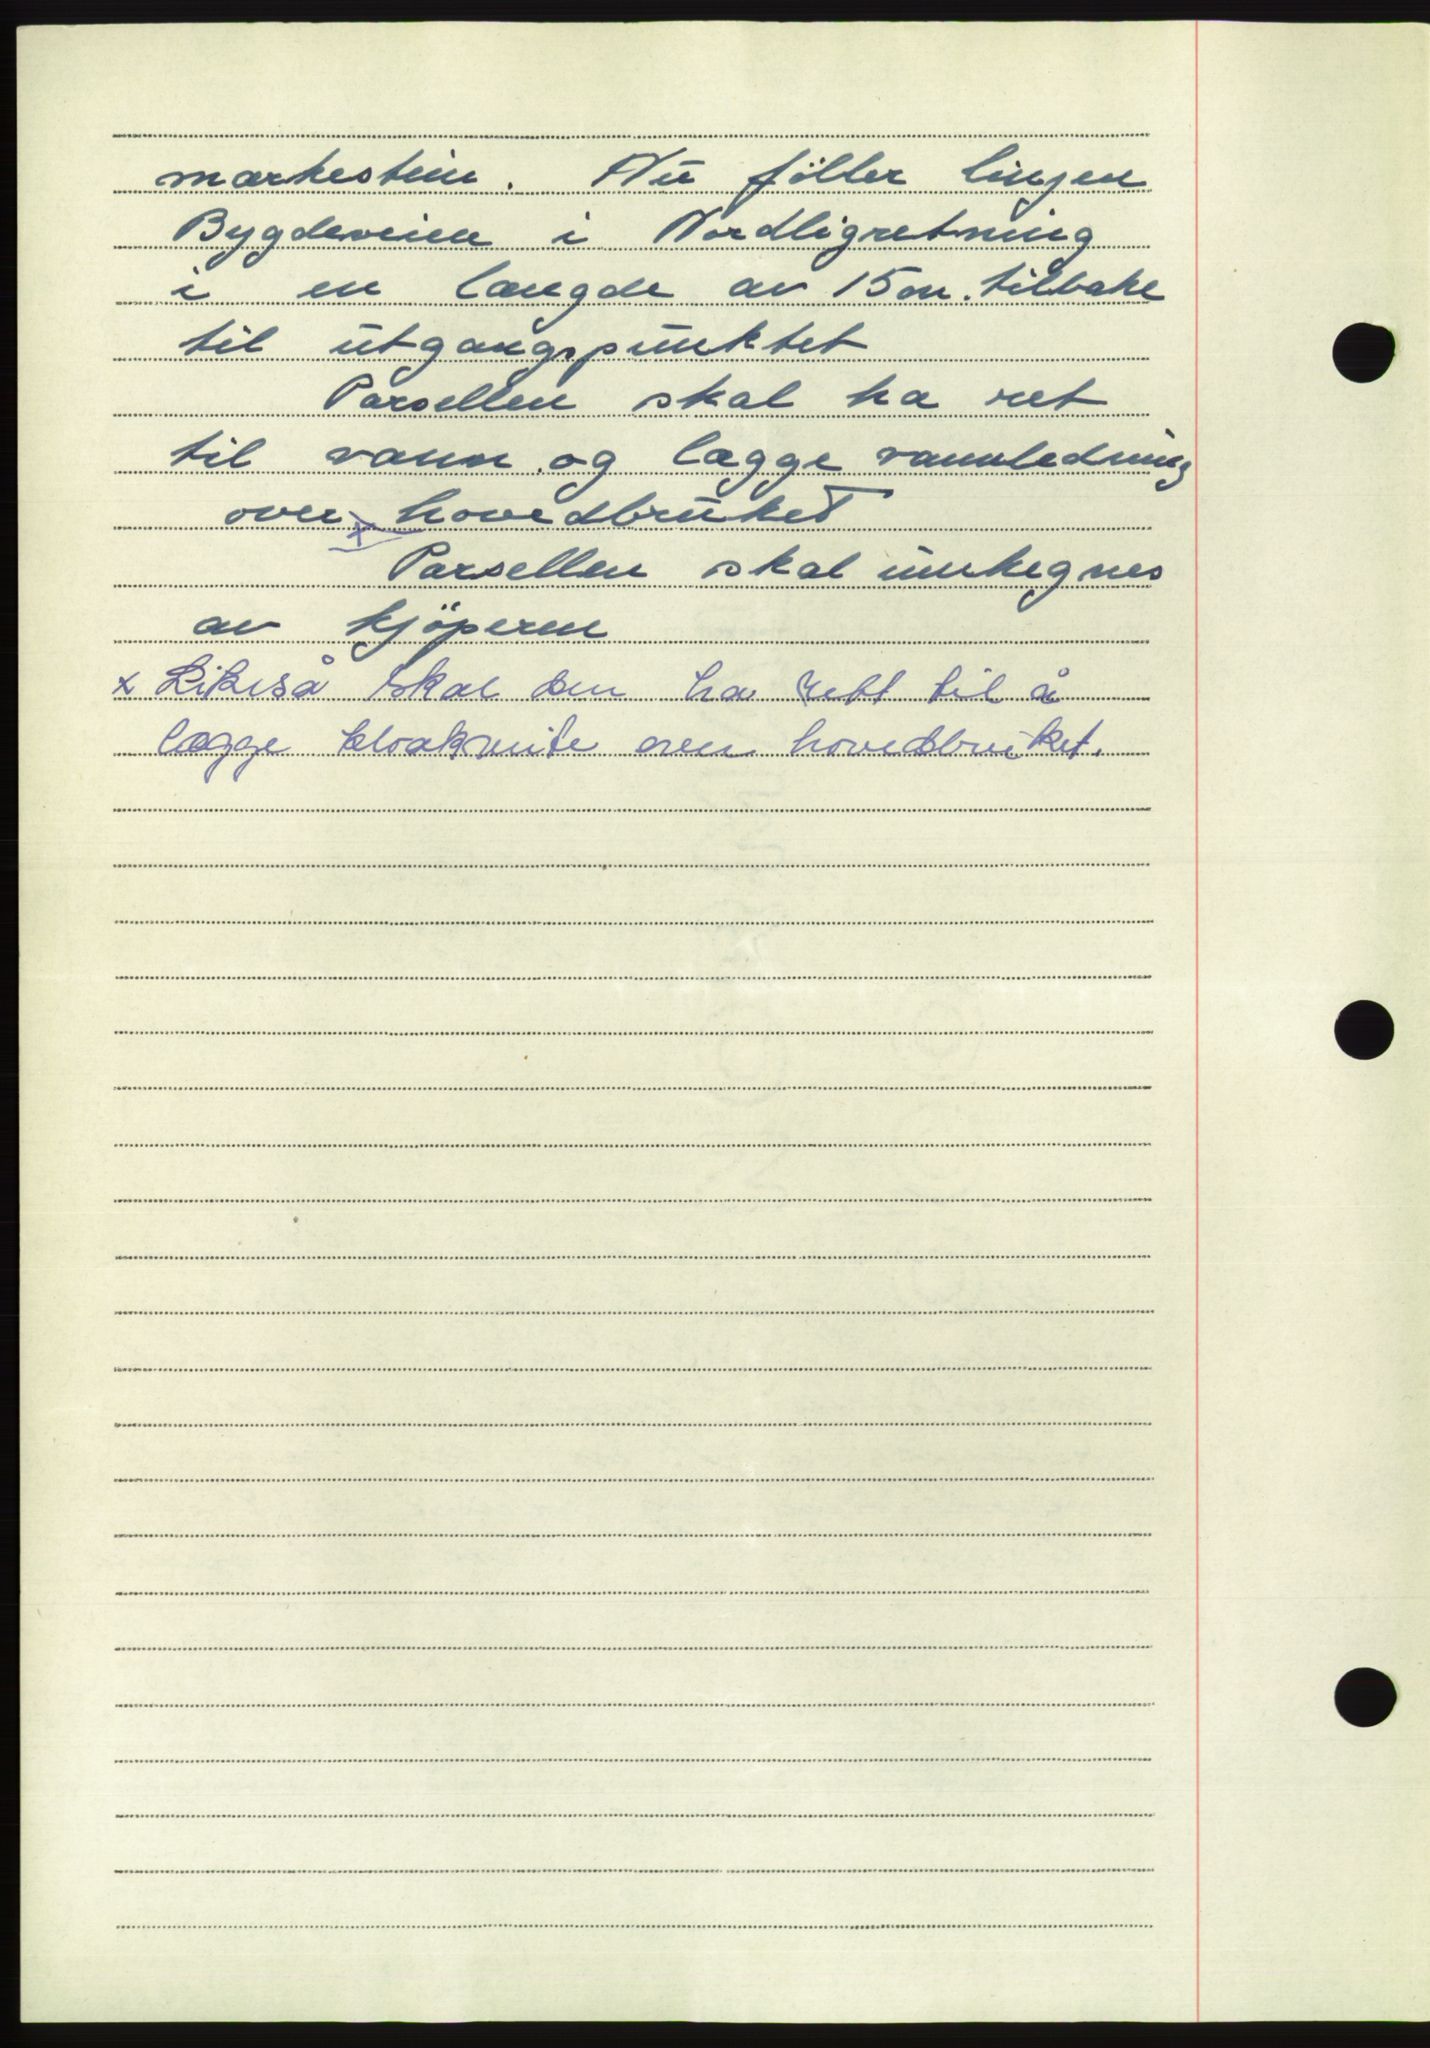 markestein. Nu föller linjen
Bygdeveien i Nordligretning
i en længde av 15 m. tilbake
til utgangspunktet
Parsellen skal ha ret
til vann og lægge vannledning
over x hovedbruket
Parsellen skal innhegnes
av kjöperen
x Likeså skal den ha rett til å
lægge kloakk over hovedbruket.